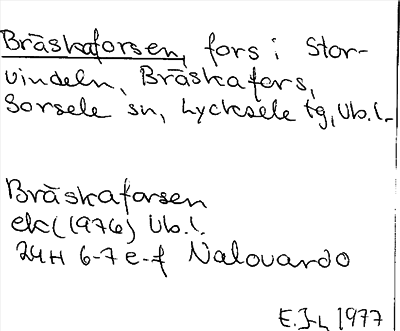 Bräskaforsen, fors i Stor-
vindeln, Bräskafors,
Sorsele sn, Lycksele tg, Vb. l.
Bräskaforsen
ek (1976) Vb. l.
24H 6-7 e-f Nalovardo
1977